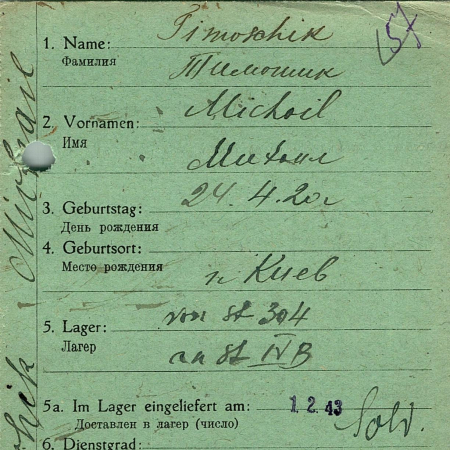 57
1. Name: Timoschik
Фамилия Тимошик
2. Vornamen: Michail
Имя Михаил
3. Geburtstag: 24.4.20г
День рождения
4. Geburtsort:
Место рождения г Киев
5. Lager: von St 304
Лагер an St IVB
5a. Im Lager eingeliefert am: 1.2.43
Доставлен в лагер (число) Sold.
6. Dienstgrad:
Michail